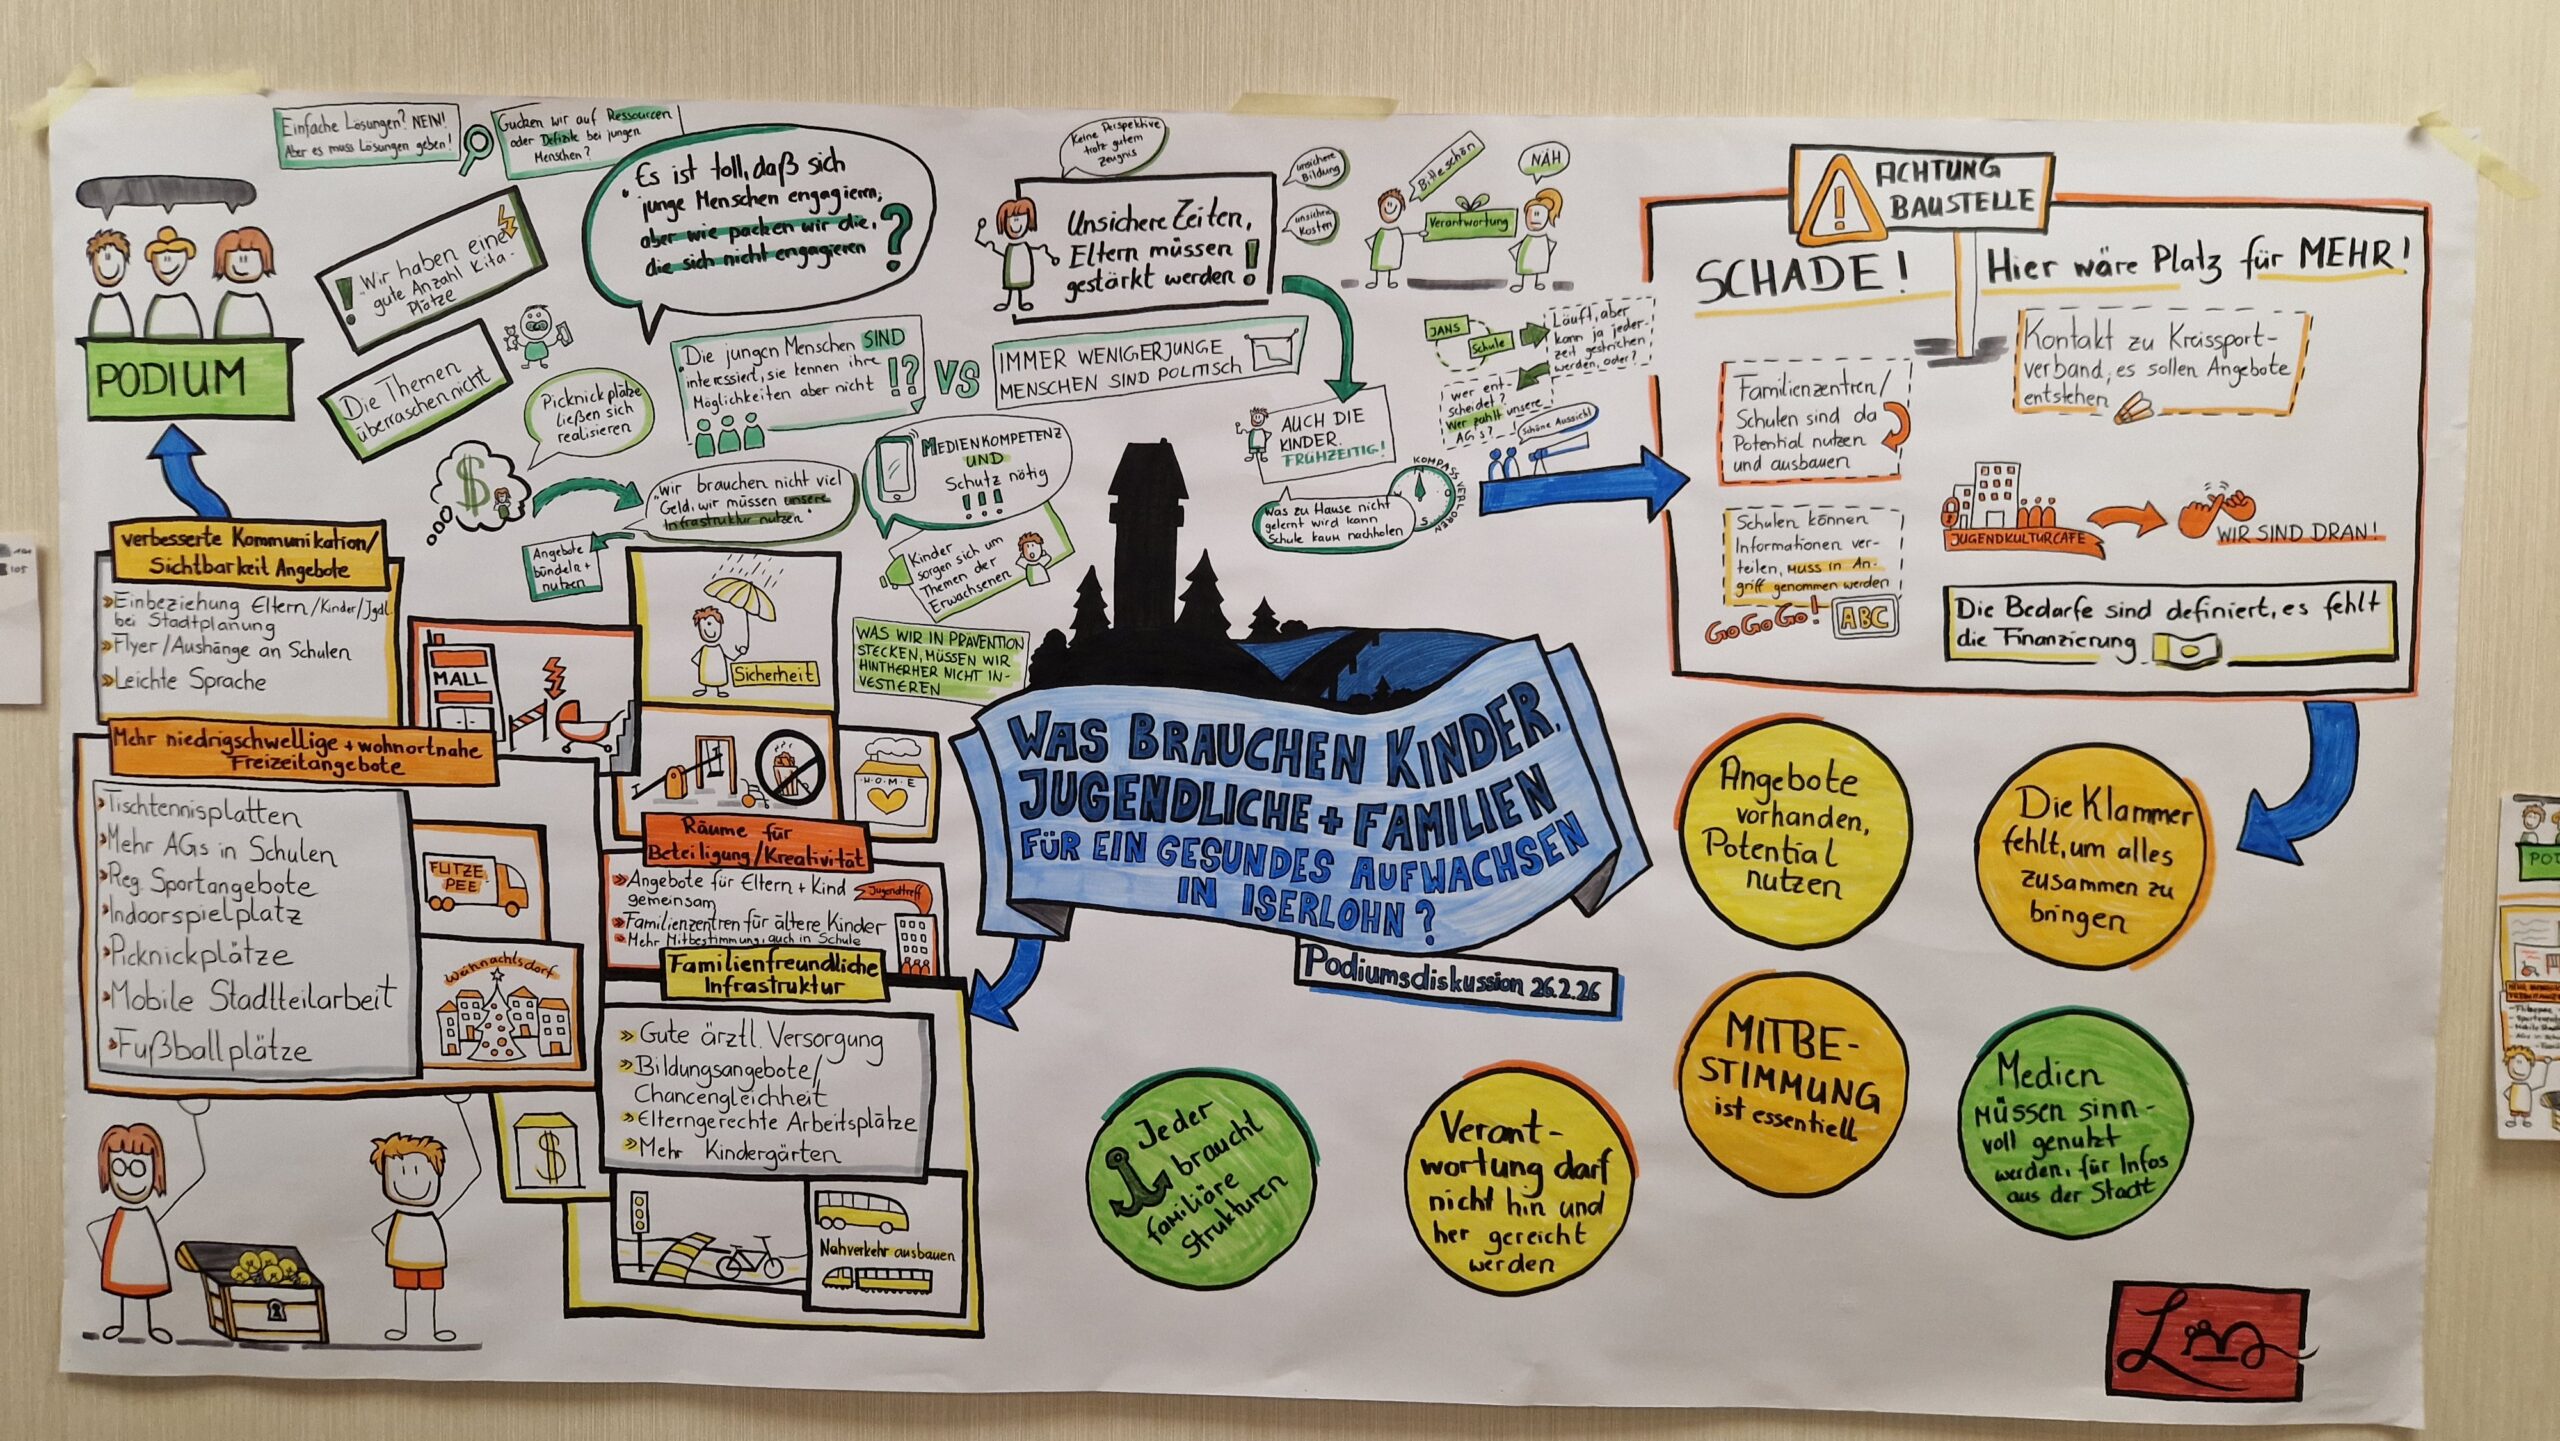 Einfache Lösungen? NEIN!
Aber es muss Lösungen geben!
Gucken wir auf Ressourcen
oder Defizite bei jungen
Menschen?
PODIUM
! "Wir haben eine
gute Anzahl Kita-
Plätze
Die Themen
überraschen nicht
Es ist toll, daß sich
junge Menschen engagieren,
aber wie packen wir die,
die sich nicht engagieren
?
Picknickplätze
ließen sich
realisieren
$
"Wir brauchen nicht viel
Geld, wir müssen unsere
Infrastruktur nutzen"
Angebote
bündeln +
nutzen
Die jungen Menschen SIND
interessiert, sie kennen ihre
Möglichkeiten aber nicht
!?
VS
IMMER WENIGER JUNGE
MENSCHEN SIND POLITISCH
MEDIENKOMPETENZ
UND
Schutz nötig
!!!
Kinder
sorgen sich um
Themen der
Erwachsenen
WAS WIR IN PRÄVENTION
STECKEN, MÜSSEN WIR
HINTHERHER NICHT IN-
VESTIEREN
Keine Perspektive
trotz gutem
Zeugnis
unsichere
Bildung
unsichre
Kosten
Unsichere Zeiten,
Eltern müssen
gestärkt werden!
Bitteschön
Verantwortung
NÄH
AUCH DIE
KINDER.
FRÜHZEITIG!
Was zu Hause nicht
gelernt wird kann
Schule kaum nachholen
KOMPASS VERLOREN
JANS
Schule
Läuft, aber
kann ja jeder-
zeit gestrichen
werden, oder?
wer ent-
scheidet?
Wer zahlt unsere
AG's?
Schöne Aussicht
ACHTUNG
BAUSTELLE
SCHADE!
Hier wäre Platz für MEHR!
Familienzentren/
Schulen sind da
Potential nutzen
und ausbauen
Kontakt zu Kreissport-
verband, es sollen Angebote
entstehen
Schulen können
Informationen ver-
teilen, MUSS IN AN-
griff genommen werden
GO GO GO!
ABC
JUGENDKULTURCAFE
WIR SIND DRAN!
Die Bedarfe sind definiert, es fehlt
die Finanzierung
verbesserte Kommunikation/
Sichtbarkeit Angebote
Einbeziehung Eltern/Kinder/Jgdl.
bei Stadtplanung
Flyer/Aushänge an Schulen
Leichte Sprache
MALL
Sicherheit
H·O·M·E
Mehr niedrigschwellige + wohnortnahe
Freizeitangebote
Tischtennisplatten
Mehr AGs in Schulen
Reg. Sportangebote
Indoorspielplatz
Picknickplätze
Mobile Stadtteilarbeit
Fußballplätze
FLITZE
PEE
Weihnachtsdorf
Räume für
Beteiligung/Kreativität
Angebote für Eltern + Kind
gemeinsam
Familienzentren für ältere Kinder
Mehr Mitbestimmung, auch in Schule
Jugendtreff
Familienfreundliche
Infrastruktur
Gute ärztl. Versorgung
Bildungsangebote/
Chancengleichheit
Elterngerechte Arbeitsplätze
Mehr Kindergärten
$
Nahverkehr ausbauen
WAS BRAUCHEN KINDER,
JUGENDLICHE + FAMILIEN
FÜR EIN GESUNDES AUFWACHSEN
IN ISERLOHN?
Podiumsdiskussion 26.2.26
Angebote
vorhanden,
Potential
nutzen
Die Klammer
fehlt, um alles
zusammen zu
bringen
MITBE-
STIMMUNG
ist essentiell
Medien
müssen sinn-
voll genutzt
werden, für Infos
aus der Stadt
Jeder
braucht
familiäre
Strukturen
Verant-
wortung darf
nicht hin und
her gereicht
werden